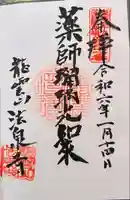 奉拝
令和六年一月十四日
薬師瑠璃光如来
龍雲山 法泉寺